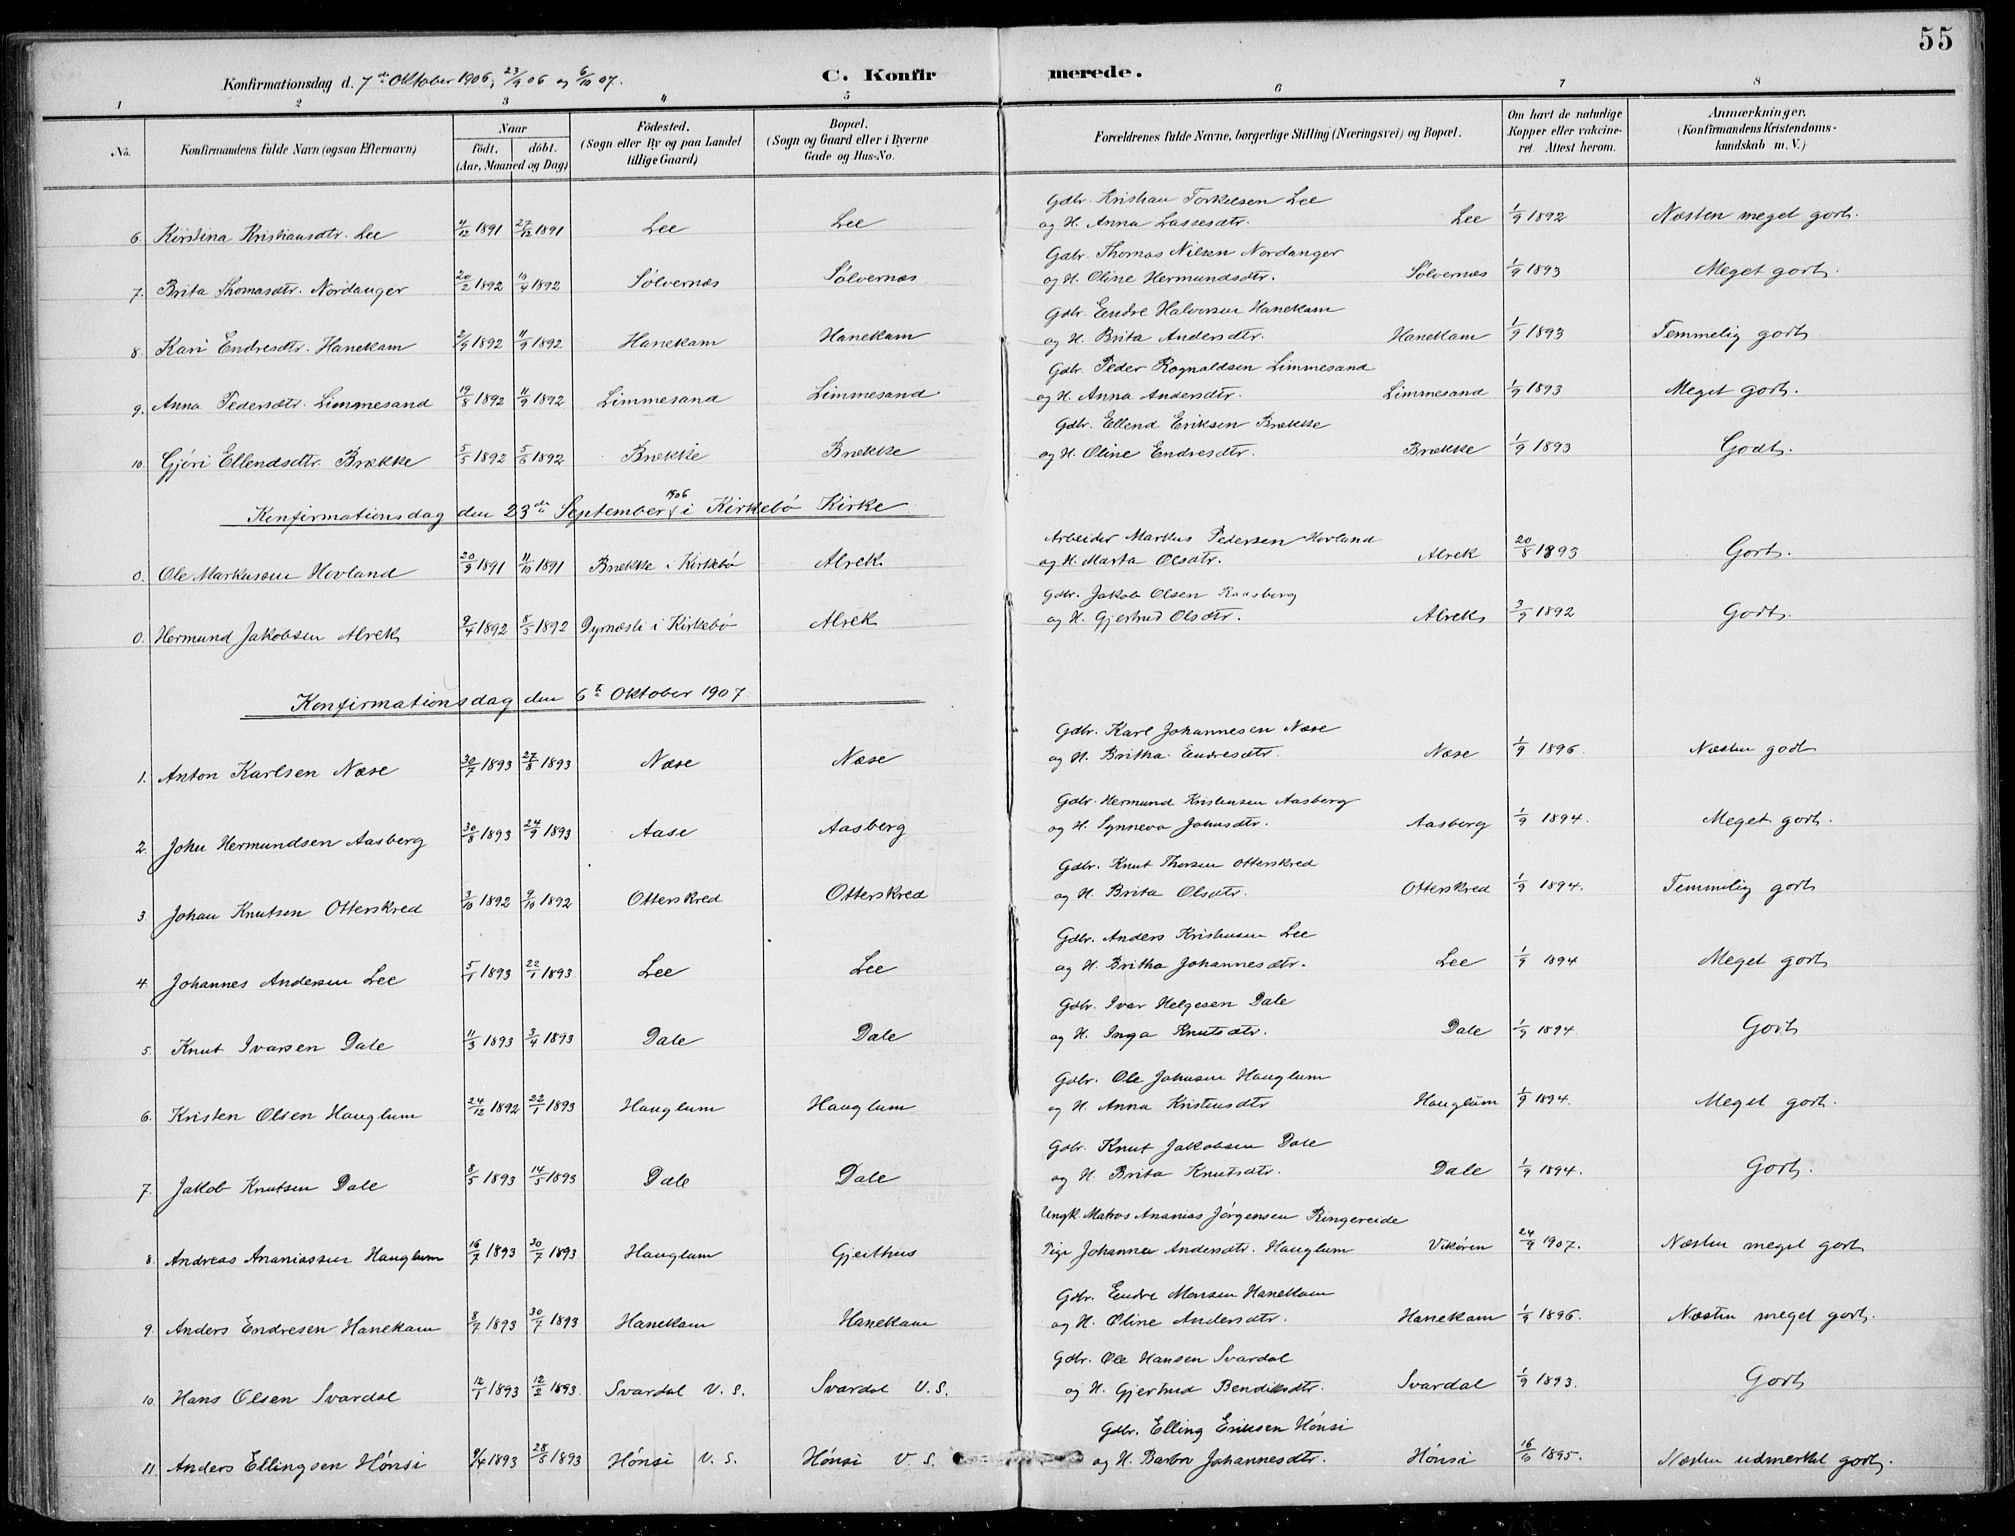 55
Konfirmationsdag d. 7de Oktober 1906, 23/9 06 og 6/10 07.
C. Konfirmerede.
1 2 3 4 5 6 7 8
No. Konfirmandens fulde Navn (ogsaa Efternavn) Naar födt. döbt. (Aar, Maaned og Dag) Födested. (Sogn eller By og paa Landet tillige Gaard) Bopæl. (Sogn og Gaard eller i Byerne Gade og Hus-No. Forældrenes fulde Navne, borgerlige Stilling (Næringsvei) og Bopæl. Om havt de naturlige Kopper eller vakcineret. Attest herom. Anmærkninger. (Konfirmandens Kristendomskundskab m. V.)
Gdbr. Kristian Torkelsen Lee
6. Kirstina Kristiansdtr. Lee 4/12 1891 27/12 1891 Lee Lee og H. Anna Lassesdtr. Lee 1/9 1892 Næsten meget godt.
Gdbr. Thomas Nilsen Nordanger
7. Brita Thomasdtr. Nordanger 20/2 1892 10/4 1892 Sølvernæs Sølvernæs og H. Oline Hermundsdtr. Sølvernæs 1/9 1893 Meget godt.
Gdbr. Endre Halvorsen Hanekam
8. Kari Endresdtr. Hanekam 2/9 1892 11/9 1892 Hanekam Hanekam og H. Brita Andersdtr. Hanekam 1/9 1893 Temmelig godt
Gdbr. Peder Rognaldsen Limmesand
9. Anna Pedersdtr. Limmesand 19/8 1892 11/9 1892 Limmesand Limmesand og H. Anna Andersdtr. Limmesand 1/9 1893 Meget godt.
Gdbr. Ellend Eriksen Brække
10. Gjöri Ellendsdtr. Brække 5/5 1892 5/6 1892 Brække Brække og H. Oline Endresdtr. Brække 1/9 1893 Godt.
Konfirmationsdag den 23de September 1906 i Kirkebö Kirke
Arbeider Markus Pedersen Hovland
0. Ole Markussen Hovland 20/9 1891 11/10 1891 Brække i Kirkebö Alrek og H. Marta Olsdtr. Alrek 20/8 1893 Godt.
Gdbr. Jakob Olsen
0. Hermund Jakobsen Alrek 9/4 1892 8/5 1892 Dyrnæsli i Kirkebö Alrek og H. Gjertrud Olsdtr. Alrek 3/9 1892 Godt.
Konfirmationsdag den 6te Oktober 1907
Gdbr. Karl Johannesen Næse
1. Anton Karlsen Næse 30/7 1893 27/8 1893 Næse Næse og H. Britha Endresdtr. Næse 1/9 1896. Næsten godt
Gdbr. Hermund Kristensen Aasberg
2. John Hermundsen Aasberg 30/8 1893 24/9 1893 Aase Aasberg og H. Synneva Johnsdtr. Aasberg 1/9 1894. Meget godt.
Gdbr. Knut Thorsen Otterskred
3. Johan Knutsen Otterskred 3/10 1892 9/10 1892 Otterskred Otterskred og H. Brita Olsdtr. Otterskred 1/9 1894. Temmelig godt
Gdbr. Anders Kristensen Lee
4. Johannes Andersen Lee 5/1 1893 22/1 1893 Lee Lee og H. Britha Johannesdtr. Lee 1/9 1894 Meget godt
Gdbr. Ivar Helgesen Dale
5. Knut Ivarsen Dale 11/3 1893 3/4 1893 Dale Dale og H. Inga Knutsdtr. Dale 1/9 1894. Godt
Gdbr. Ole Johnsen Hauglum
6. Kristen Olsen Hauglum 24/12 1892 22/1 1893 Hauglum Hauglum og H. Anna Kristensdtr Hauglum 1/9 1894. Meget godt.
Gdbr. Knut Jakobsen Dale
7. Jakob Knutsen Dale 8/5 1893 14/5 1893 Dale Dale og H. Brita Knutsdtr. Dale 1/9 1894. Godt.
Ungk. Matros Ananias Jörgensen Ringereide
8. Andreas Ananiassen Hauglum 16/7 1893 30/7 1893 Hauglum Gjeithus Pige Johanna Andersdtr. Hauglum Vikören 24/9 1907. Næsten meget godt
Gdbr. Endre Monsen Hanekam
9. Anders Endresen Hanekam 8/7 1893 30/7 1893 Hanekam Hanekam og H. Oline Andersdtr. Hanekam 1/9 1896. Næsten meget godt.
Gdbr. Ole Hansen Svardal
10. Hans Olsen Svardal 12/1 1893 12/2 1893. Svardal V. S. Svardal V. S. og H. Gjertrud Bendiksdtr. Svardal 1/9 1893. Godt
Gdbr. Elling Eriksen Hónsi
11. Anders Ellingsen Hónsi 9/4 1893 28/5 1893 Hónsi V. S. Hónsi V. S. og H. Barbro Johannesdtr. Hónsi 1895. Næsten udmerket godt.